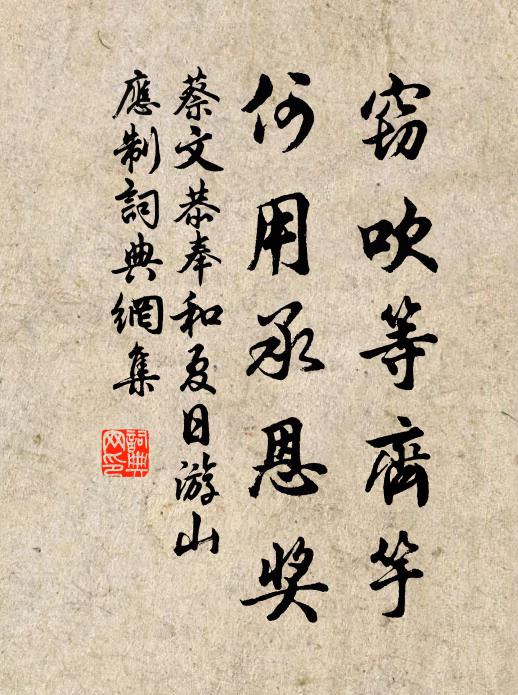 窃吹等齊竽
何用承恩奖
蔡文恭奉和夏日游山
應制詞典網集
詞典
网印